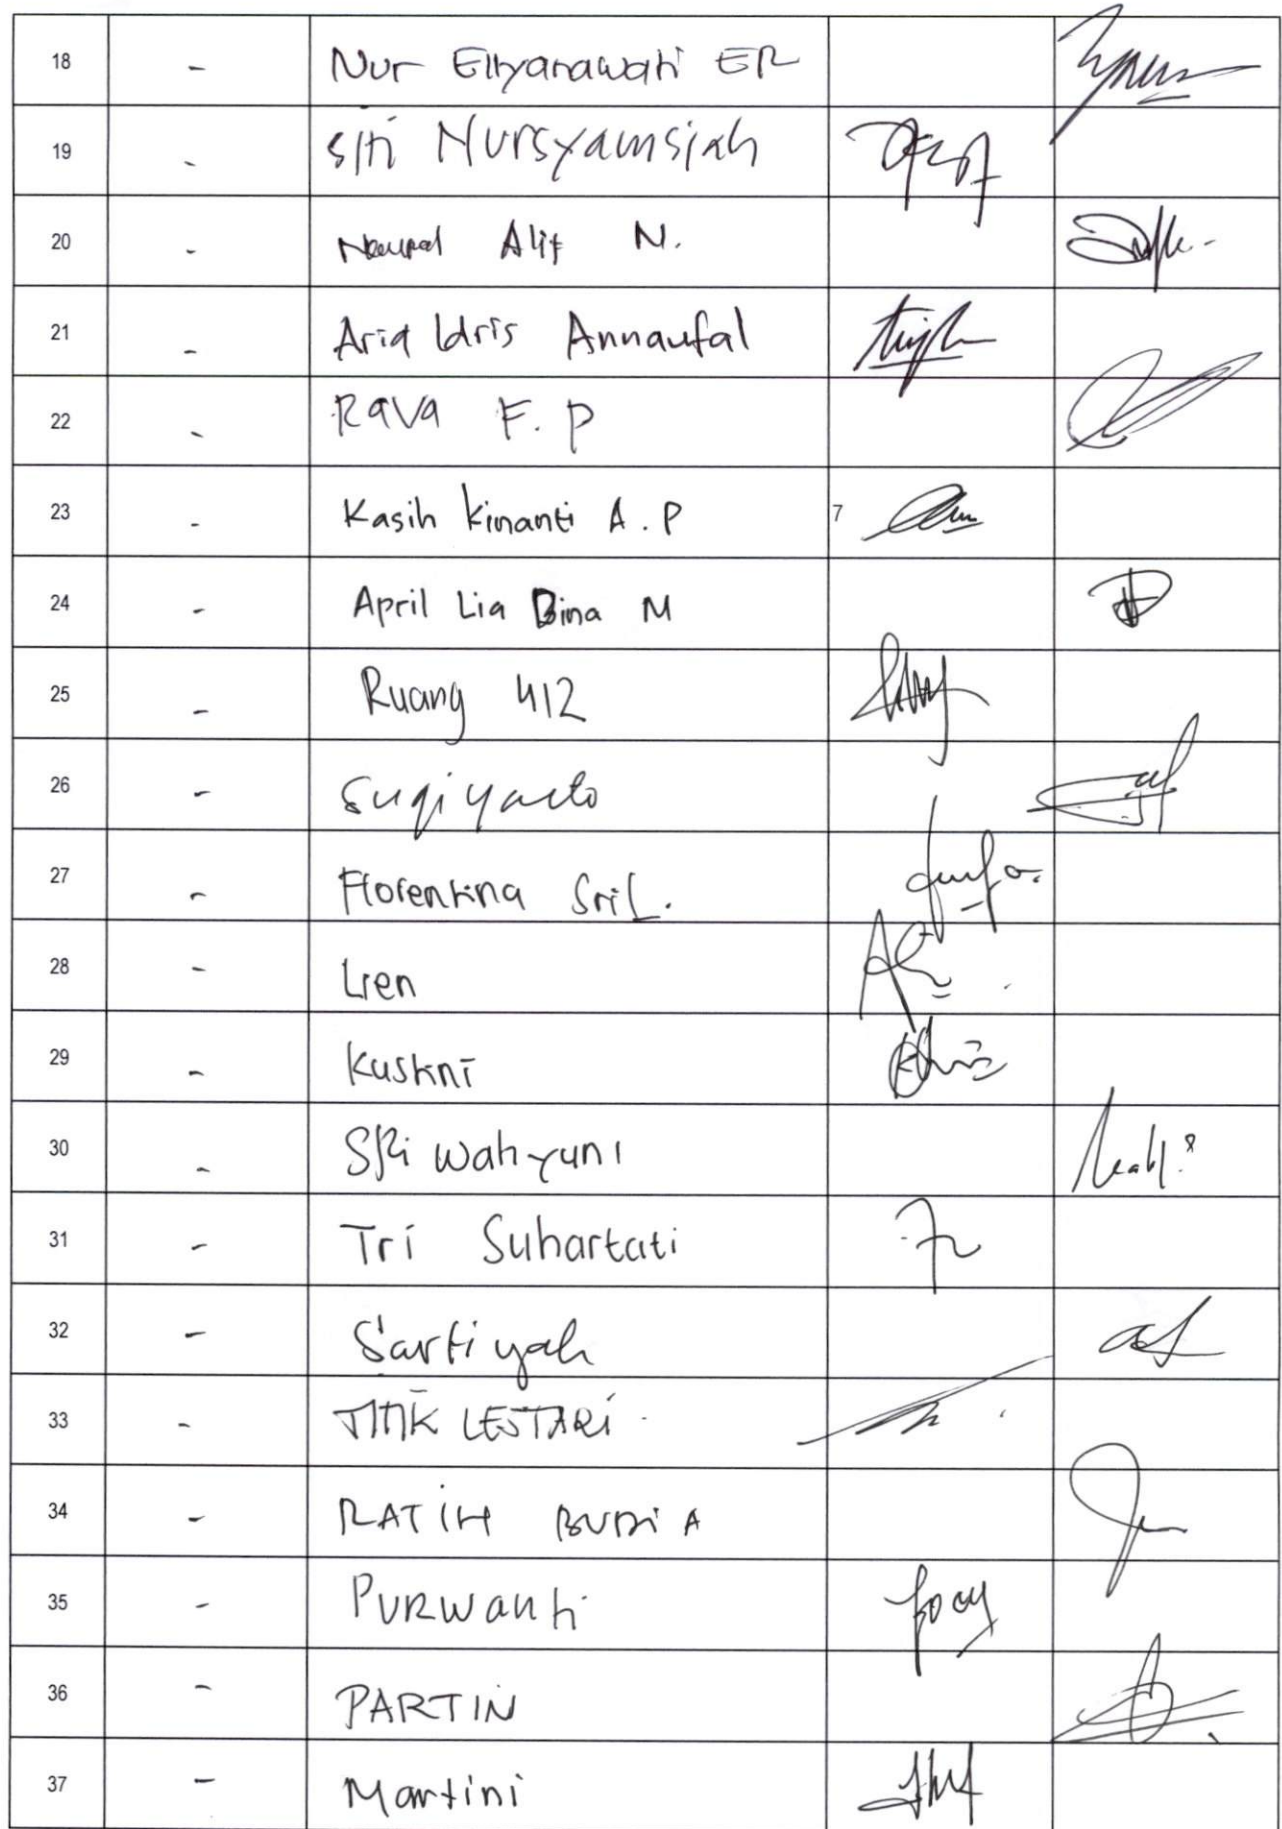 18 - Nur Ellyanawati ER
19 - Siti Nursyamsiah
20 - Naupal Alif N.
21 - Aria Idris Annaufal
22 - Rava F. P
23 - Kasih kinanti A. P 7
24 - April Lia Dina M
25 - Ruang 412
26 - Sugiyarto
27 - Florentina Sri L.
28 - Lien
29 - Kustini
30 - SRi Wahyuni
31 - Tri Suhartati
32 - Sartiyah
33 - TITIK LESTARI
34 - RATIH BUDI A
35 - PURWanti
36 - PARTIN
37 - Martini